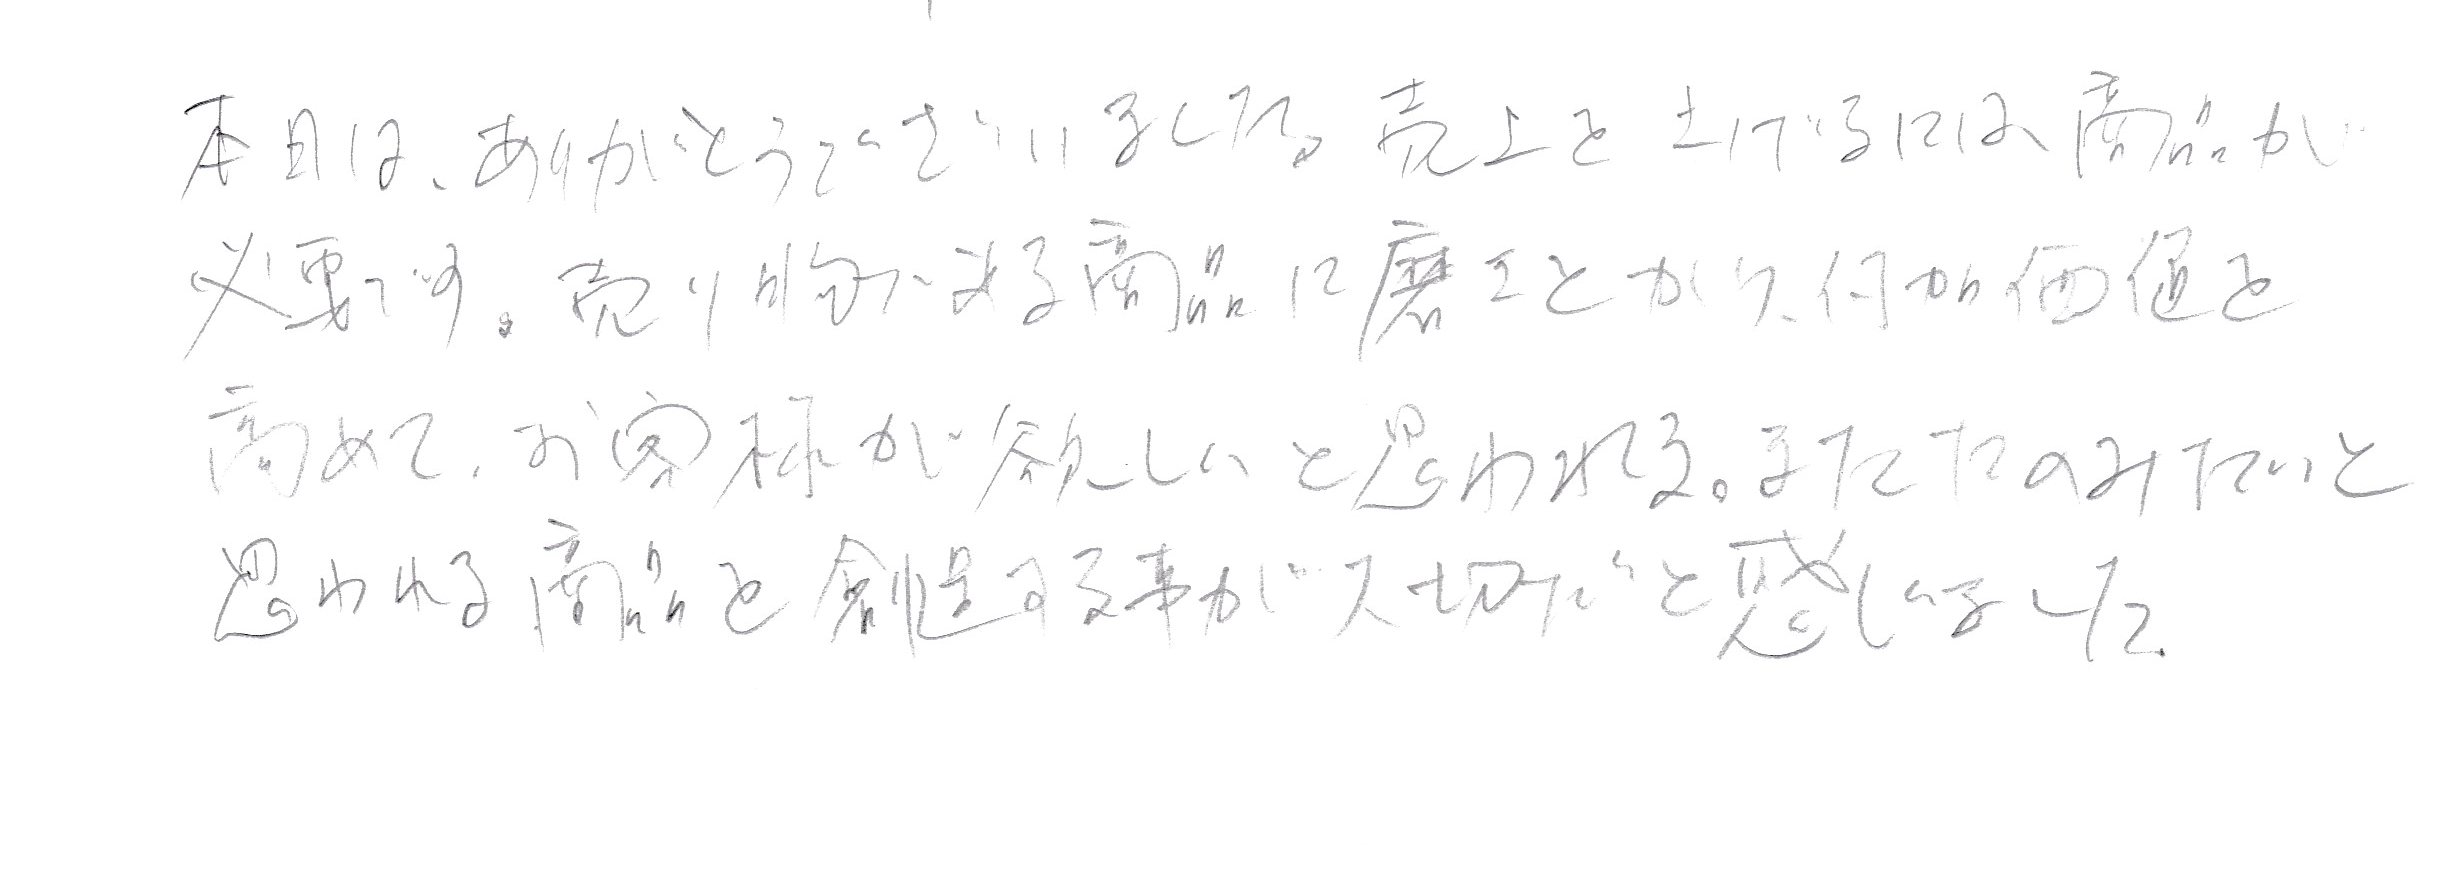 本日は、ありがとうございました。売上を上げるには商品が
必要です。売り物である商品に磨エとかけ、付加価値を
高めて、お客様が欲しいと思われる。またたのみたいと
思われる商品を創造する事が大切だと感じました。